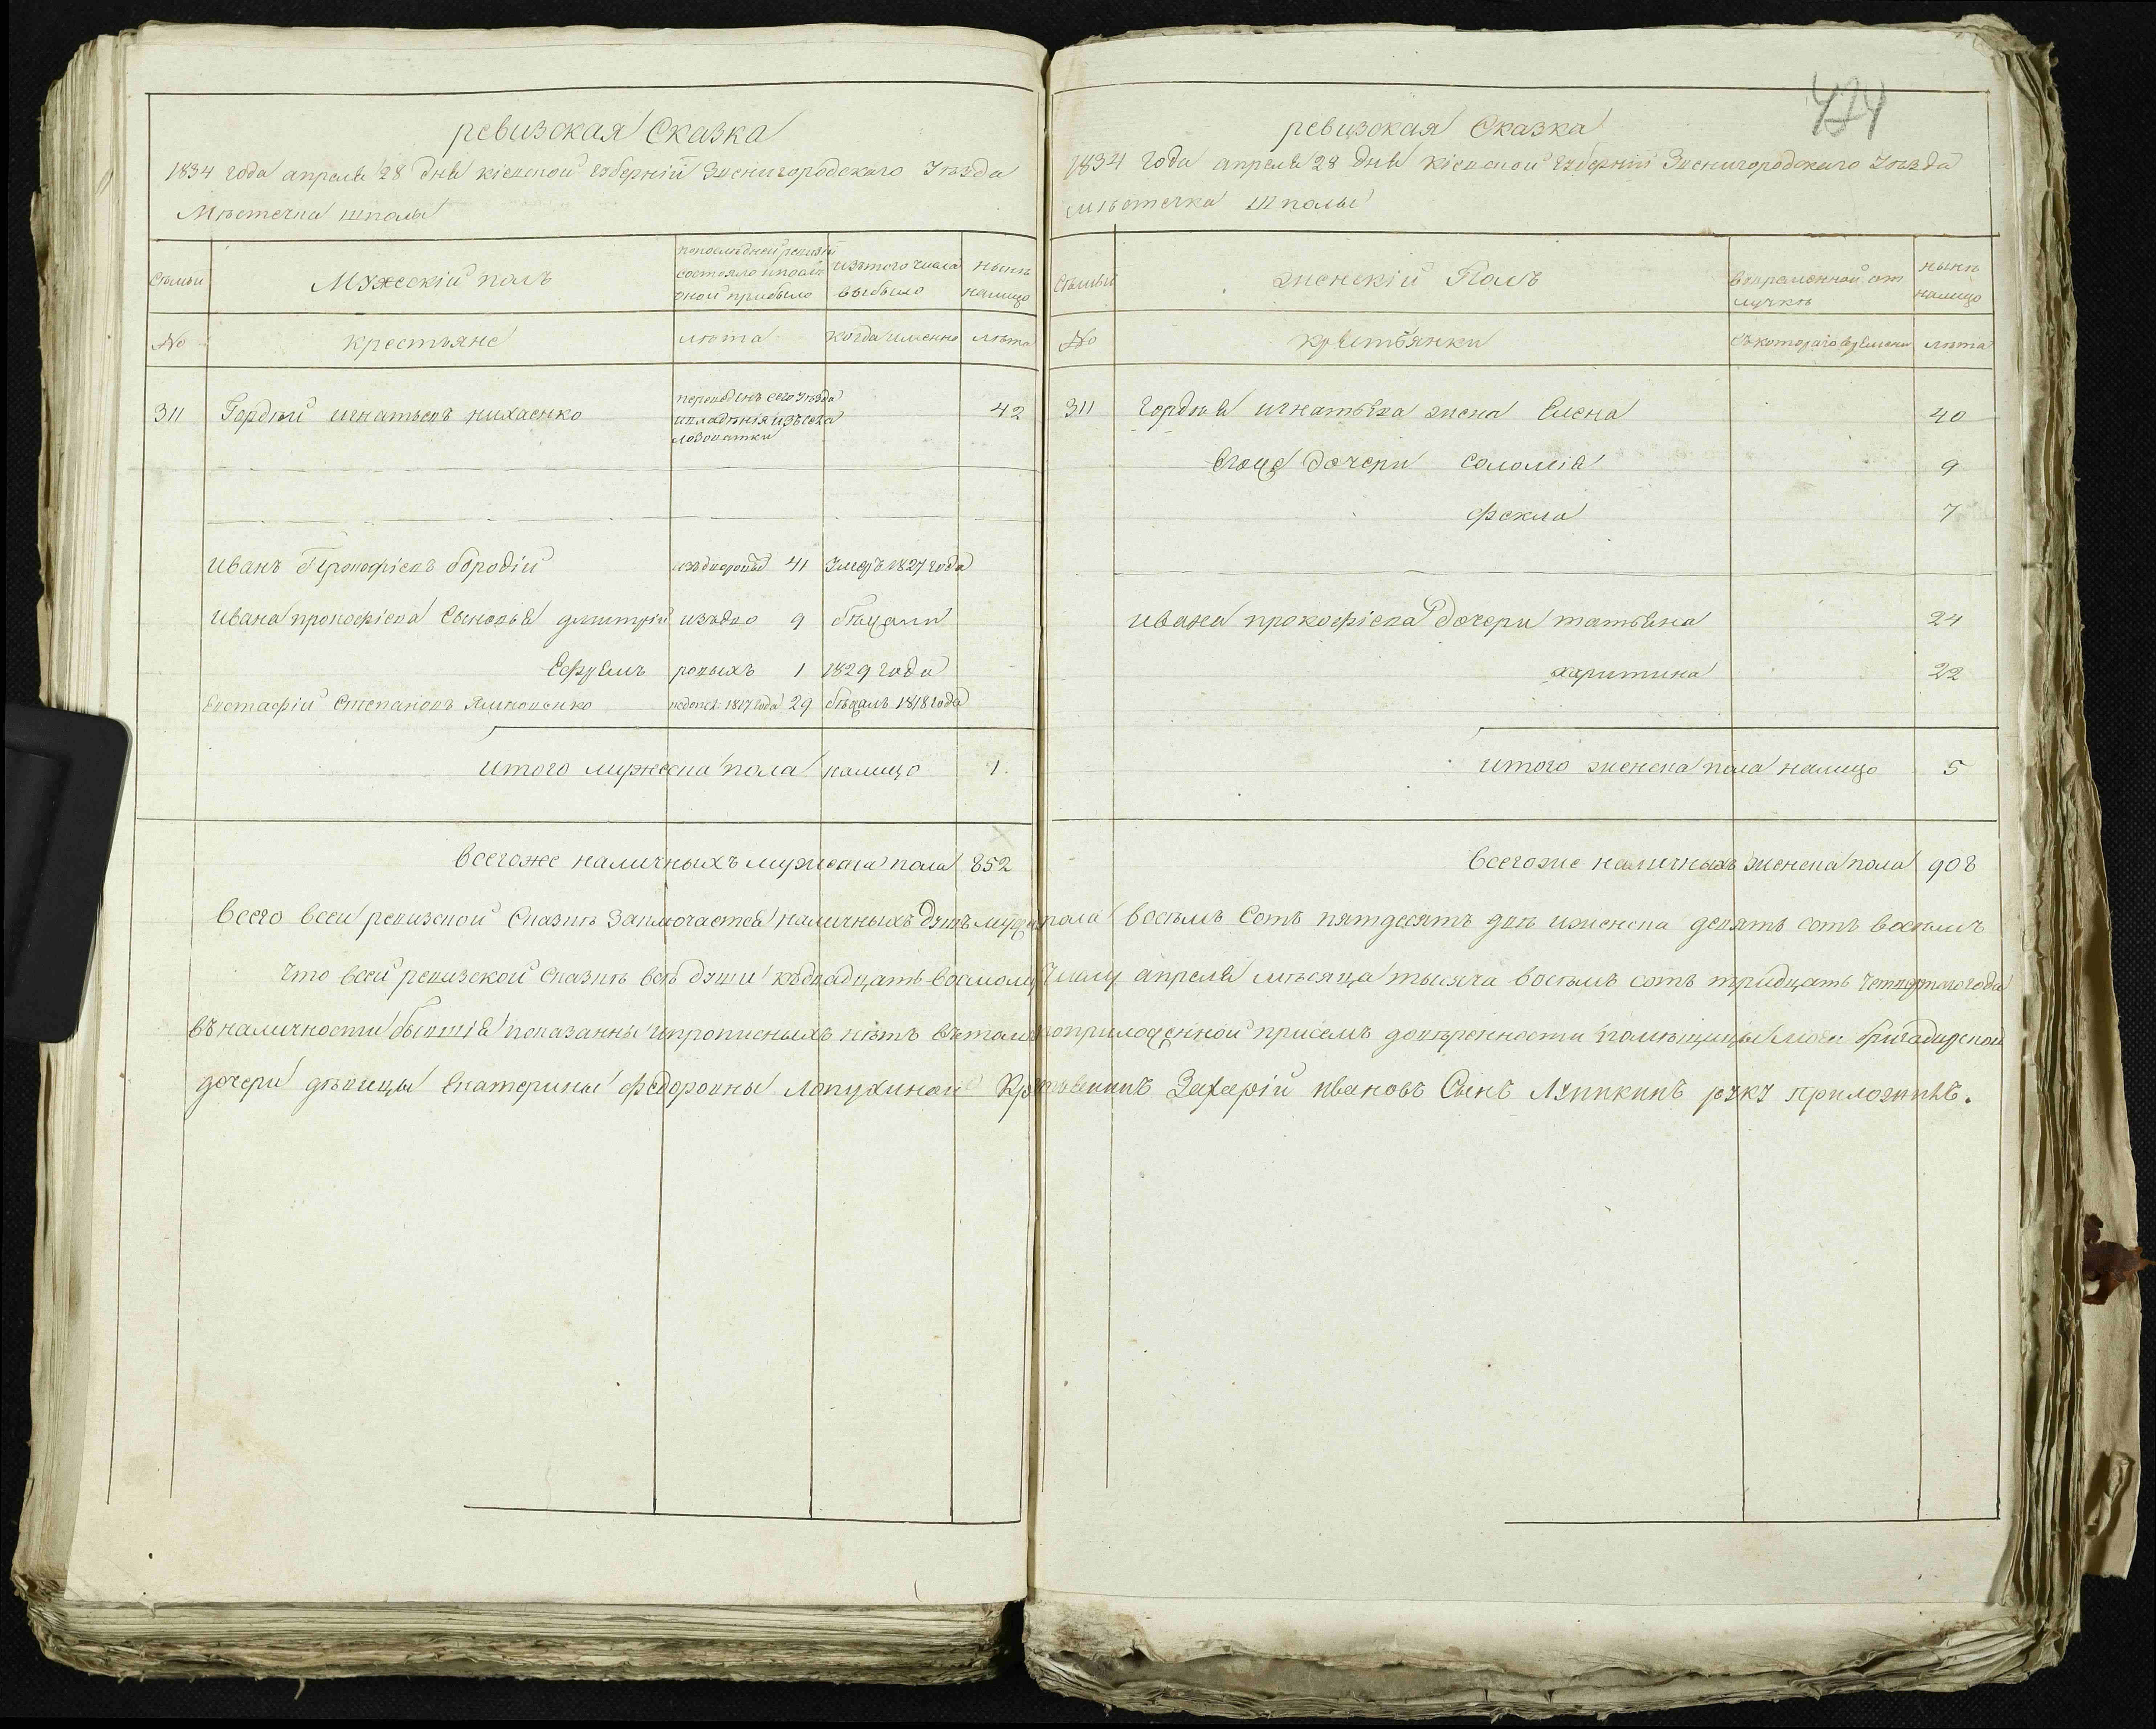 ревизская Сказка
1834 года апреля 28 дня кіевской губерніи Звенигородскаго Уѣзда
Мѣстечка шполы
Семьи
Мужескій полъ
попослѣдней ревизіи
состояло и послѣ
оной прибыло
изътого числа
выбыло
нынѣ
налицо
No
крестьяне
лѣта
когда именно
лѣта
311 Гордѣй игнатьевъ михаенко
переведенъ сего Уѣзда
ивладѣнія изъ села
лозоватки
42
иванъ Прокофіевъ бородій 41 Умеръ 1827 года
ивана прокофіева Сыновья дмитрій изъдво 9 бѣжали
Ефремъ ровыхъ 1 1829 года
Евстафій Степановъ 1817 года 29 бѣжалъ 1818 года
итого мужеска пола налицо 1
всегоже наличныхъ мужеска пола 852
424
ревизская Сказка
1834 года апреля 28 дня кіевской губерніи Звенигородскаго Уѣзда
мѣстечка шполы
Семьи
женскій Полъ
вовременной от
лучкѣ
нынѣ
налицо
No
крестьянки
съкотораго времени
лѣта
311 гордѣя игнатьева жена Елена 40
Егоже дочери соломія 9
фекла 7
ивана прокофіева дочери татьяна 24
харитина 22
итого женска пола налицо 5
всегоже наличныхъ женска пола 908
всего всей ревизской Сказкѣ Заключается наличныхъ душъ муж: пола восемъ Сотъ пятдесятъ двѣ иженска девять сотъ восемъ
что всей ревизской Сказкѣ всѣ души къдвадцать восмому числу апреля мѣсяца тысяча восемъ сотъ тридцать четвертаго года
въналичности бывшія показанны ипрописныхъ нѣтъ вътомъ поприложенной присемъ довѣренности помѣщицы бригадирской
дочери дѣвицы Екатерины Федоровны лопухиной Захарій ивановъ Сынъ Лупкинъ руку приложилъ.